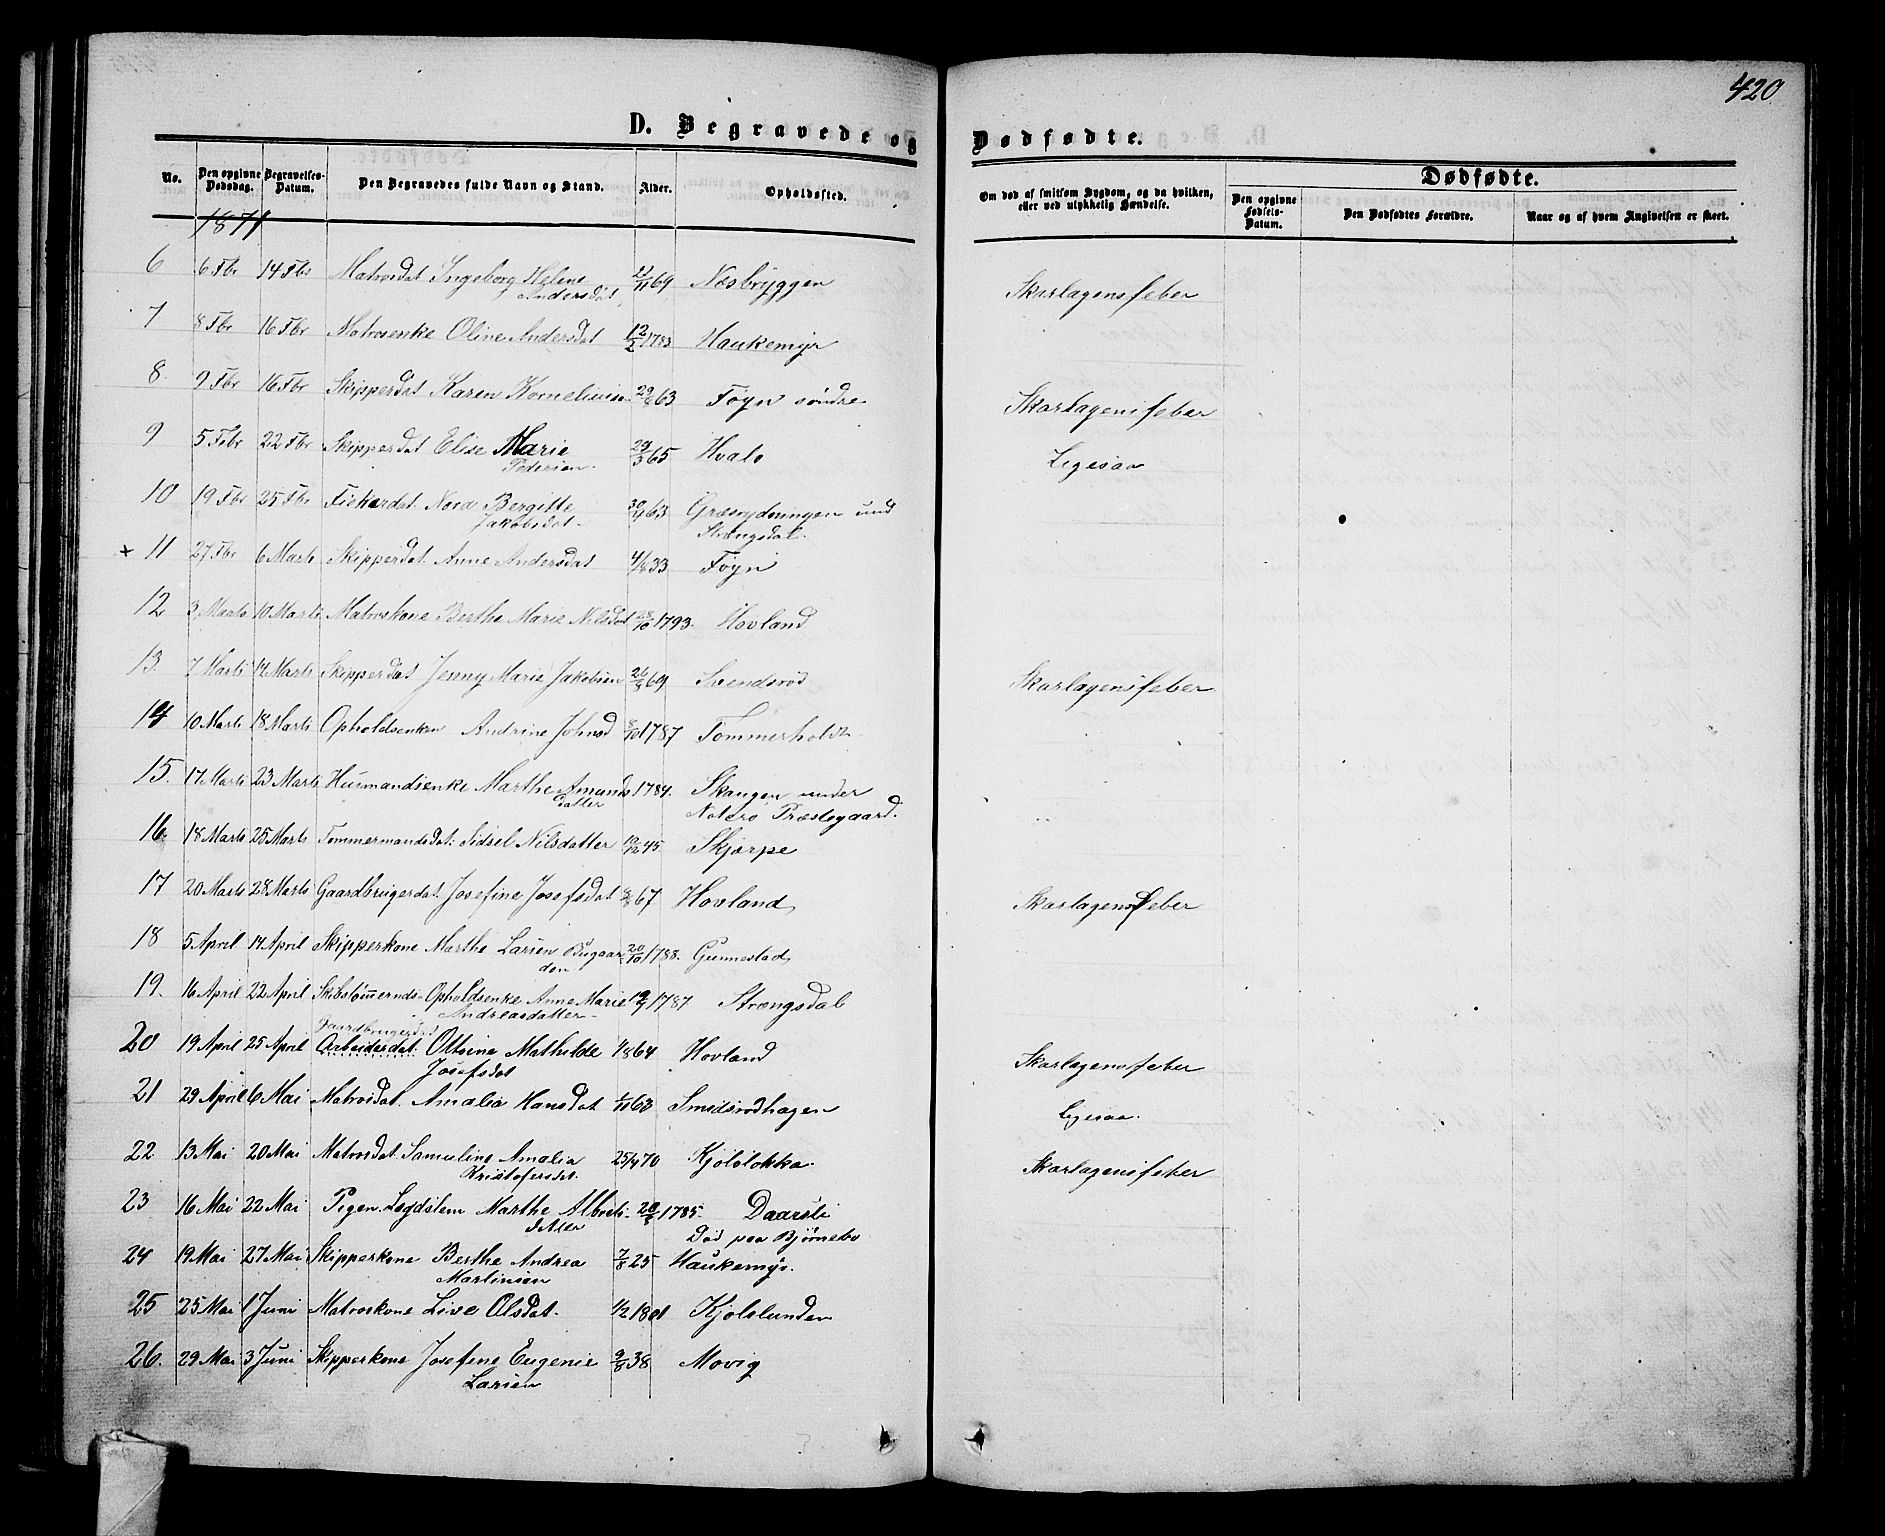 420
D. Begravede og Dødfødte.
No. Den opgivne Dødsdag. Begravelses-Datum. Den Begravedes fulde Navn og Stand. Alder. Opholdssted. Om død af smitsom Sygdom, og da hvilken, eller ved ulykkelig Hændelse. Dødfødte. Den opgivne Fødsels-Datum. Den Dødfødtes Forældre. Naar og af hvem Angivelsen er skeet.
1871
6 6 Fbr 14 Fbr Matrosdat Ingeborg Helene 69 Næsbryggen Skarlagensfeber
Andersdat
7 8 Fbr 16 Fbr Matrosenke Oline Andersdat 12/2 1783 Haukemyr
8. 9 Fbr 16 Fbr Skipperdat Karen Kornelius 63 Føyn søndre Skarlagensfeber
9 5 Fbr 22 Fbr Skipperdat Elise Marie 29/3 65 Hvalø Ligesaa
Pedersen.
10 19 Fbr 25 Fbr Fiskerdat. Nora Bergitte 63 Græsrydningen und
Jakobsdat. Strængsdal.
+ 11 27 Fbr 6 Marts Skipperdat. Anne Andersdat 4/8 33 Føyn
12 3 Marts 10 Marts Matroskone Berthe Marie Nilsdat 28/10 1793. Hovland
13. 7 Marts 14 Marts Skipperdat Jenny Marie Jakobsen 69 Svendsrød Skarlagensfeber
14 10 Marts 18 Marts Opholdsenken Andrine Johnsd 8/10 1787 Tommerholdt
15. 17 Marts 23 Marts Husmandsenke Marthe Amunds 1784. Skangen under
datter Nøterø Præstegaard.
16. 18 Marts 25 Marts Tommermandsdat: Sidsel Nilsdatter 19/12 45 Skjærpe
17 20 Marts 28 Marts Gaardbrugerdat. Josefine Josefsdat 67 Hovland Skarlagensfeber
18 5 April 14 April Skipperkone Marthe Larsen Bugaar- 20/10 1788. Gunnestad
den
19. 16 April 22 April Skibstømermds- Opholdsenke Anne Marie 1787 Strængsdal
Andreasdatter-
Gaardbrugerdat
20 19 April 25 April Arbeiderdat. Ottine Mathilde 1/8 64 Hovland Skarlagensfeber
Josefsdat
21 29 April 6 Mai Matrosdat. Amalia Hansdat 1/11 63 Smidsrødhagen Ligesaa.
22 13 Mai 20 Mai Matrosdat. Samuline Amalia 25/4 70 Kjøløløkka. Skarlagensfeber
Kristofersdat.
23 16 Mai 22 Mai Pigen. Lægdslem Marthe Alberts- 28/8 1785- Daarsti
datter Død paa Bjørnebo
24 19 Mai 27 Mai Skipperkone Berthe Andrea 7/8 25 Haukemyr.
Martinsen
25 25 Mai 1 Juni Matroskone Live Olsdat. 1/2 1801 Kjølslunden
26. 29 Mai 3 Juni Skipperkone Josefine Eugenie 9/8 38 Movig
Larsen